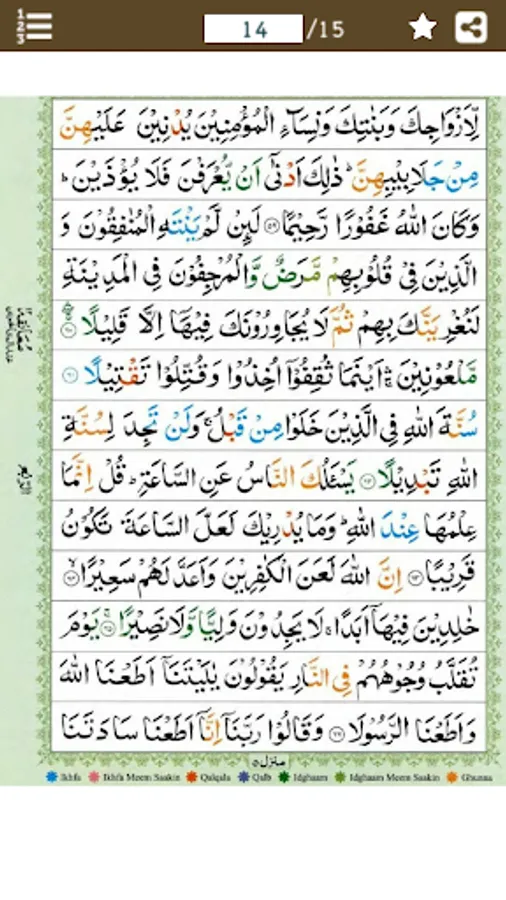 14 /15
لِّاَزْوَاجِكَ وَبَنٰتِكَ وَنِسَآءِ الْمُؤْمِنِيْنَ يُدْنِيْنَ عَلَيْهِنَّ
مِنْ جَلَابِيْبِهِنَّ ؕ ذٰلِكَ اَدْنٰٓى اَنْ يُّعْرَفْنَ فَلَا يُؤْذَيْنَ ؕ
وَكَانَ اللّٰهُ غَفُوْرًا رَّحِيْمًا ۝۵۹ لَىِٕنْ لَّمْ يَنْتَهِ الْمُنٰفِقُوْنَ وَ
الَّذِيْنَ فِىْ قُلُوْبِهِمْ مَّرَضٌ وَّالْمُرْجِفُوْنَ فِى الْمَدِيْنَةِ
لَنُغْرِيَنَّكَ بِهِمْ ثُمَّ لَا يُجَاوِرُوْنَكَ فِيْهَاۤ اِلَّا قَلِيْلًا ۝۶۰
مَّلْعُوْنِيْنَ ۛۚ اَيْنَمَا ثُقِفُوْۤا اُخِذُوْا وَقُتِّلُوْا تَقْتِيْلًا ۝۶۱
سُنَّةَ اللّٰهِ فِى الَّذِيْنَ خَلَوْا مِنْ قَبْلُ ۚ وَلَنْ تَجِدَ لِسُنَّةِ
اللّٰهِ تَبْدِيْلًا ۝۶۲ يَسْـَٔلُكَ النَّاسُ عَنِ السَّاعَةِ ؕ قُلْ اِنَّمَا
عِلْمُهَا عِنْدَ اللّٰهِ ؕ وَمَا يُدْرِيْكَ لَعَلَّ السَّاعَةَ تَكُوْنُ
قَرِيْبًا ۝۶۳ اِنَّ اللّٰهَ لَعَنَ الْكٰفِرِيْنَ وَاَعَدَّ لَهُمْ سَعِيْرًا ۝۶۴
خٰلِدِيْنَ فِيْهَاۤ اَبَدًا ۚ لَا يَجِدُوْنَ وَلِيًّا وَّلَا نَصِيْرًا ۝۶۵ يَوْمَ
تُقَلَّبُ وُجُوْهُهُمْ فِى النَّارِ يَقُوْلُوْنَ يٰلَيْتَنَاۤ اَطَعْنَا اللّٰهَ
وَاَطَعْنَا الرَّسُوْلَا ۝۶۶ وَقَالُوْا رَبَّنَاۤ اِنَّاۤ اَطَعْنَا سَادَتَنَا
منزل ۵
Ikhfa Ikhfa Meem Saakin Qalqala Qalb Idghaam Idghaam Meem Saakin Ghunna